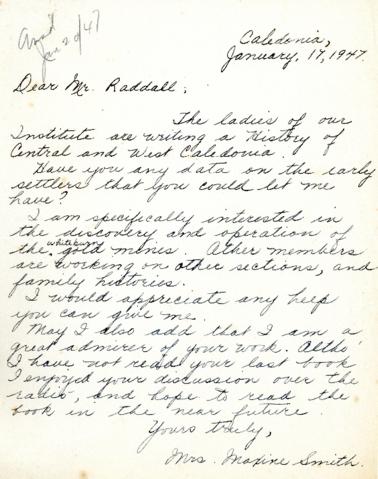 Ans'd
Jan 20/47
Caledonia,
January, 17, 1947.
Dear Mr. Raddall;
The ladies of our
Institute are writing a History of
Central and West Caledonia.
Have you any data on the early
settlers that you could let me
have?
I am specifically interested in
the discovery and operation of
the whiteburn gold mines. Other members
are working on other sections, and
family histories.
I would appreciate any help
you can give me.
May I also add that I am a
great admirer of your work. Altho'
I have not read your last book
I enjoyed your discussion over the
radio, and hope to read the
book in the near future.
Yours truly,
Mrs. Maxine Smith.